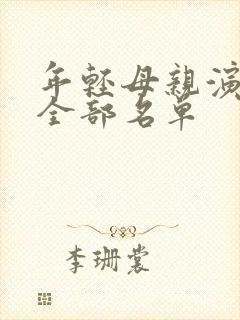 年輕母親演
全部名單
李珊裳